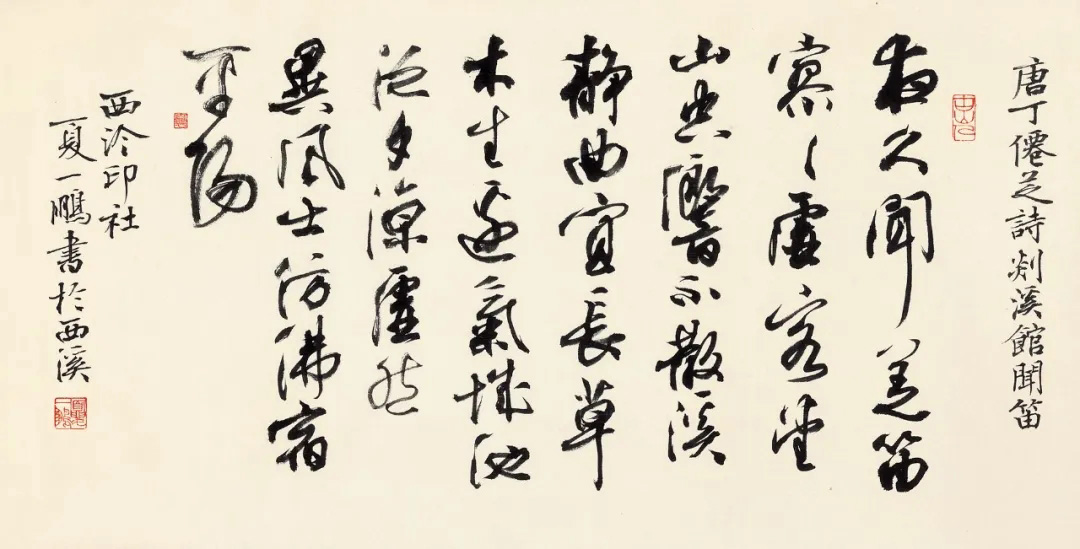 唐丁僊芝詩剡溪館聞笛
夜久聞羌笛
寥々虛客堂
山空響不散溪
靜曲宜長草
木生邊氣城池
泛夕涼虛然
異風出仿佛宿
平陽
西泠印社
夏一鵬書於西溪